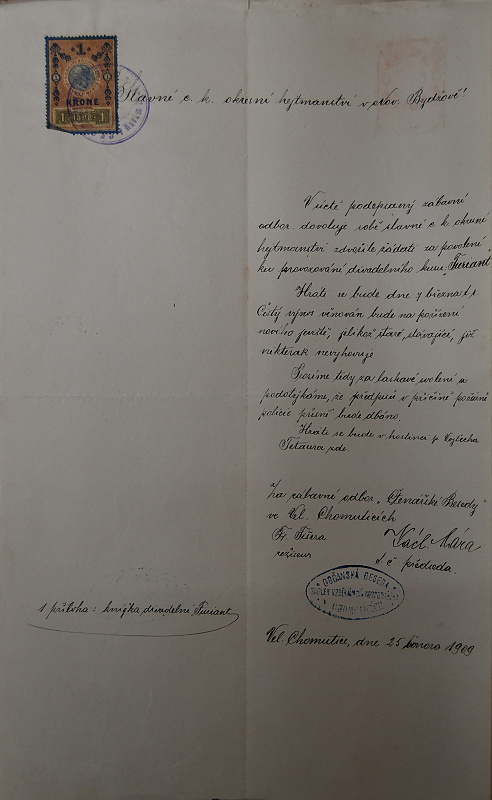 1
KRONE
1 1898 1
Slavné c. k. okresní hejtmanství v Nov. Bydžově!
V úctě podepsaný zábavní
odbor dovoluje sobě slavné c. k. okresní
hejtmanství zdvořile žádati za povolení
ku provozování divadelního kusu „Furiant".
Hráti se bude dne 7 března t. r.
Čistý výnos věnován bude na pořízení
nového jeviště, jelikož staré, stávající, již
nikterak nevyhovuje
Prosíme tedy za laskavé svolení a
podotýkáme, že předpisů v příčině požární
policie přísně bude dbáno.
Hráti se bude v hostinci p. Vojtěcha
Tetaura zde.
Za zábavní odbor „Čtenářské Besedy"
ve Vel. Chomuticích
Fr. Fišera
režiseur
Václ. Mára
t. č. předseda.
OBČANSKÁ BESEDA
1 příloha: knížka divadelní Furiant
Vel. Chomutice, dne 25 února 1909